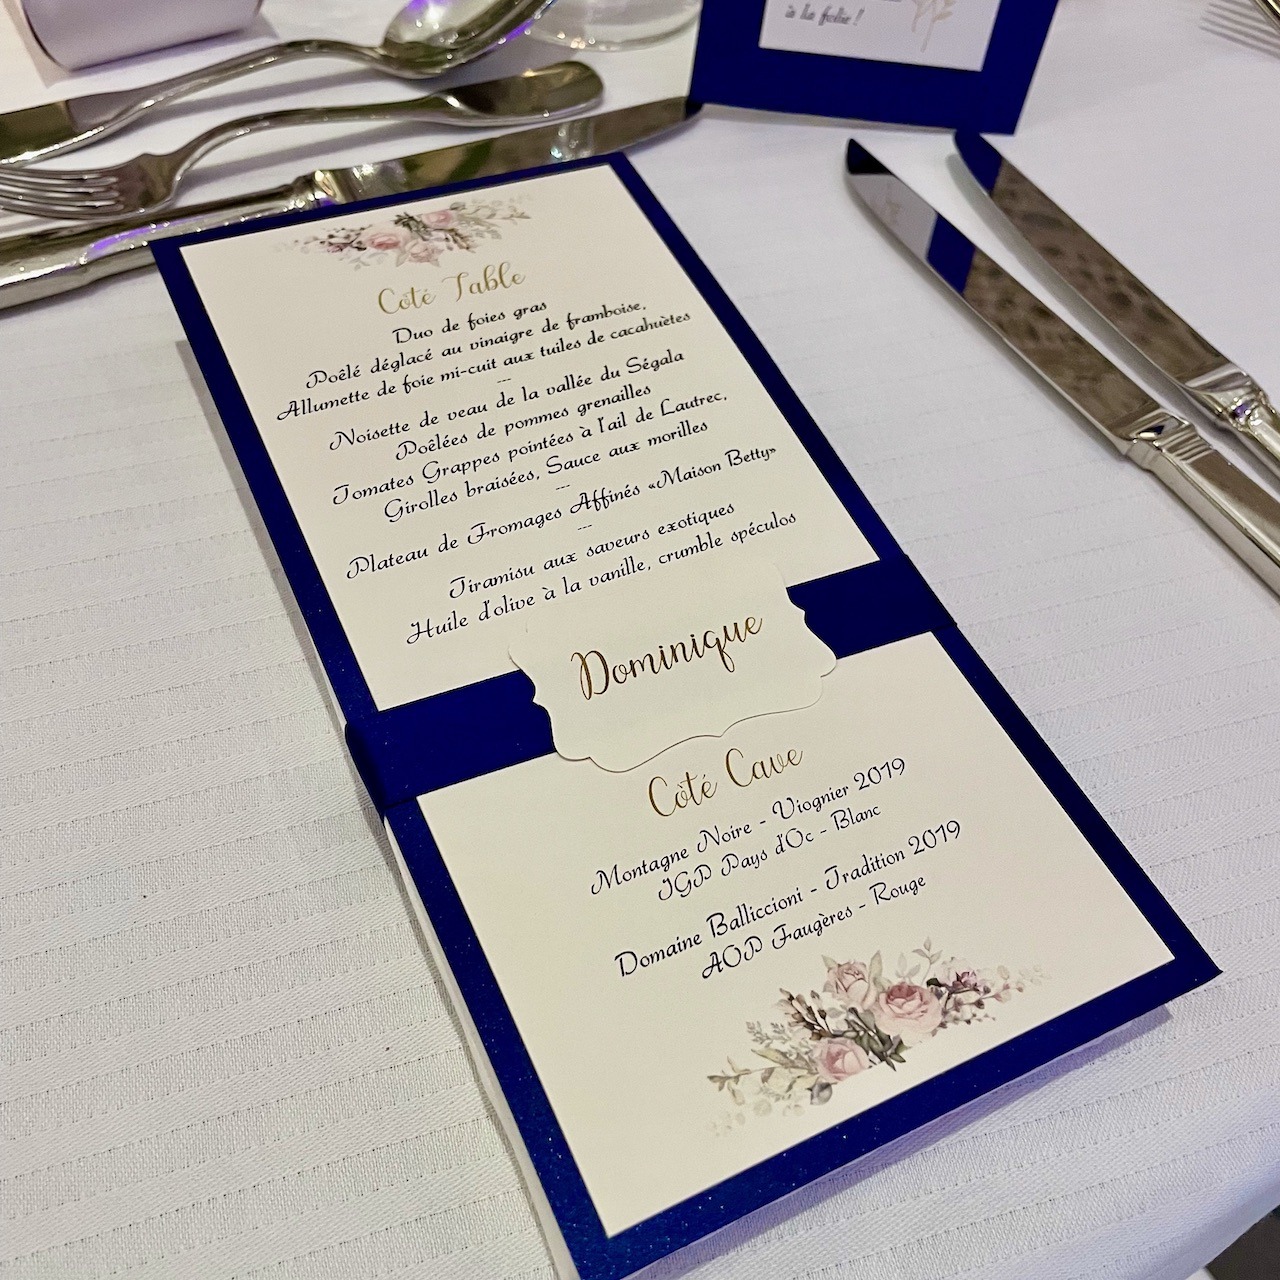 à la folie !
Coté Table
Duo de foies gras
Poêlé déglacé au vinaigre de framboise,
Allumette de foie mi-cuit aux tuiles de cacahuètes
---
Noisette de veau de la vallée du Ségala
Poêlées de pommes grenailles
Tomates Grappes pointées à l'ail de Lautrec,
Girolles braisées, Sauce aux morilles
---
Plateau de Fromages Affinés «Maison Betty»
---
Tiramisu aux saveurs exotiques
Huile d'olive à la vanille, crumble spéculos
Dominique
Coté Cave
Montagne Noire - Viognier 2019
IGP Pays d'Oc - Blanc
Domaine Balliccioni - Tradition 2019
AOP Faugères - Rouge